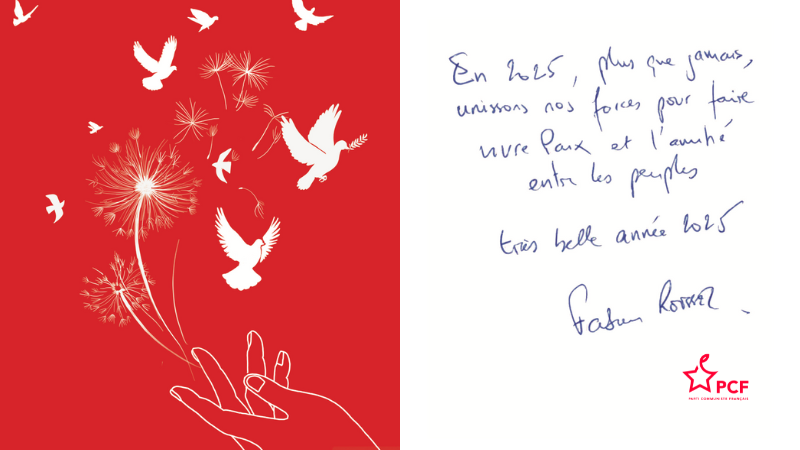 En 2025, plus que jamais,
unissons nos forces pour faire
vivre Paix et l'amitié
entre les peuples
très belle année 2025
Fabien ROUSSEL.
PCF
PARTI COMMUNISTE FRANÇAIS